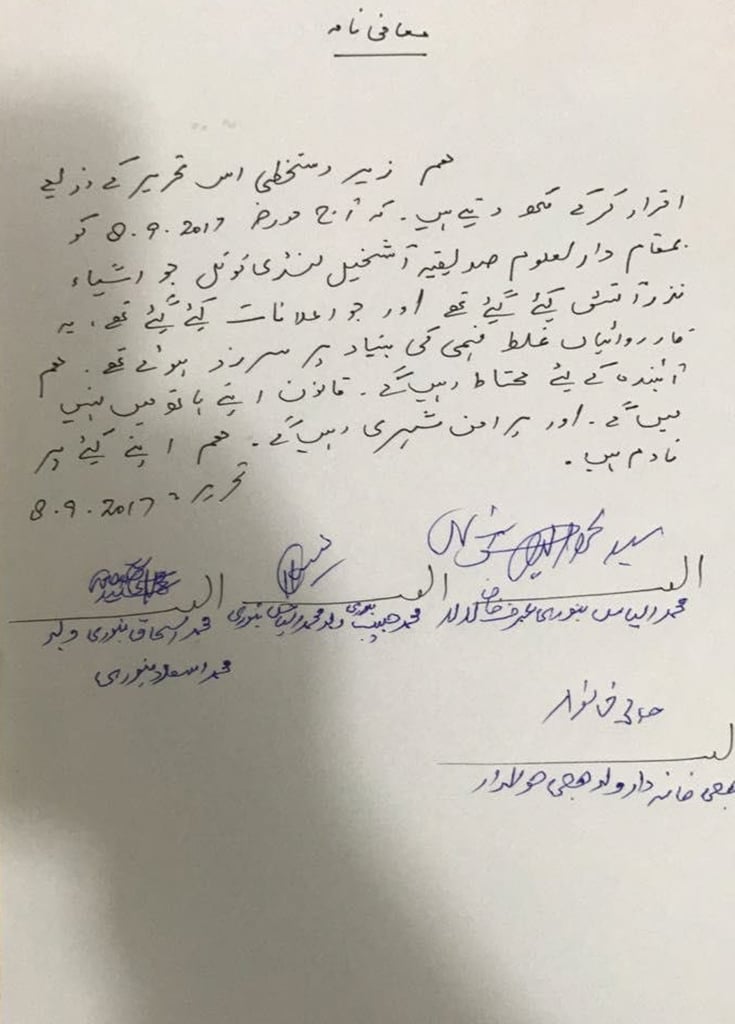 معافی نامہ
ہم زیر دستخطی اس تحریر کے ذریعے
اقرار کرکے لکھ دیتے ہیں۔ کہ آج مورخہ 8.9.2017 کو
بمقام دارالعلوم صدیقیہ آشخیل لنڈی کوتل جو اشیاء
نذر آتش کیئے گیئے تھے اور جو اعلانات کیئے گیئے تھے، یہ
کارروائیاں غلط فہمی کی بنیاد پر سرزد ہوئے تھے۔ ہم
آئندہ کے لیئے محتاط رہیں گے۔ قانون اپنے ہاتھ میں نہیں
لیں گے۔ اور پرامن شہری رہیں گے۔ ہم اپنے کیئے پر
نادم ہیں۔
تحریر: 8.9.2017
سید محمد الیاس
العبد العبد العبد
محمد الیاس بنوری عرف محمد حبیب بنوری ولد محمد الیاس بنوری محمد اسحاق بنوری ولد
محمد اسعد بنوری
حاجی
العبد
خانہ دار ولد حاجی حوالدار